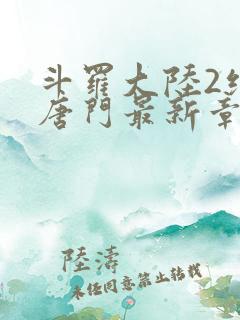 斗羅大陸2
唐門最新章
陸濤
未任同意禁止轉載